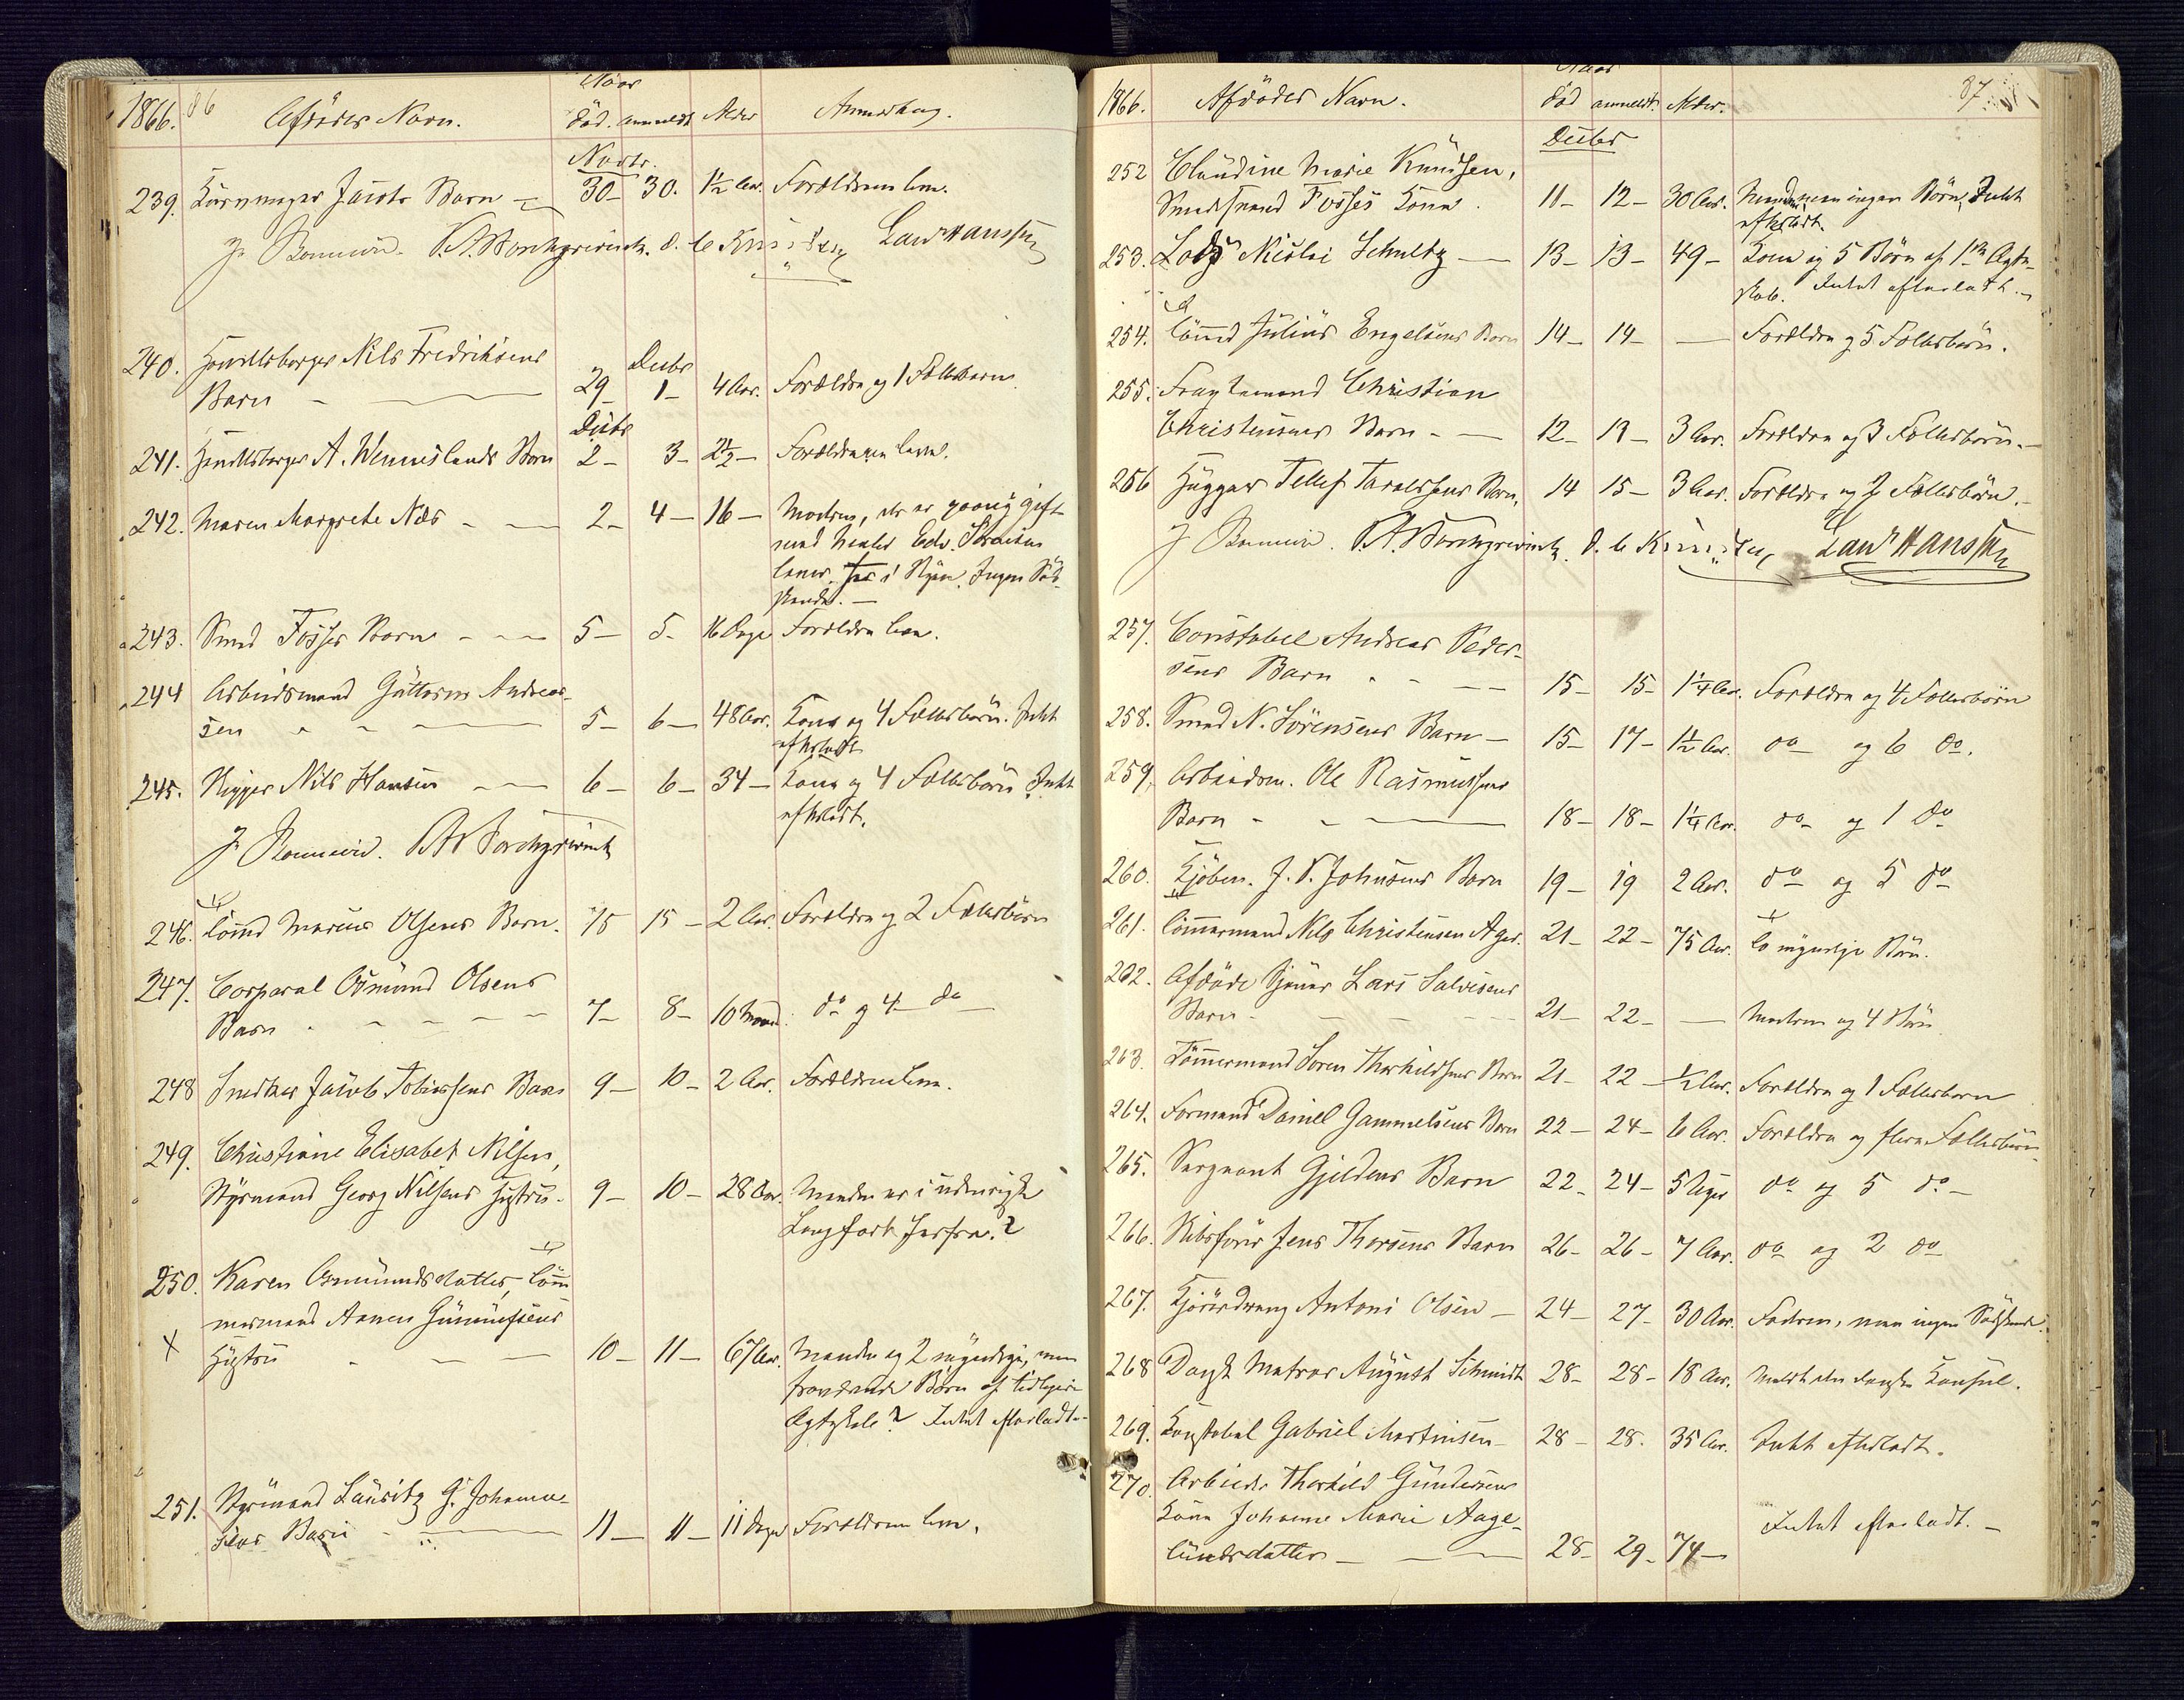 1866. 86 Afdødes Navn. Naar død. anmeldt Alder Anmærkning.
Novbr.
239. Kurvmager Jacobs Barn — 30 — 30. 1½ Aar. Forældrene leve.
P. A. Borchgrevink. O. C. Knudsen Laur Hanssen
240. Handelsborger Nils Fredriksens
Decbr
Barn — 29 — 1 — 4 Aar. Forældre og 1 Fællesbarn.
Decbr
241. Handelsborger A. Wenneslands Barn 2 — 3 — 2½ — Forældrene leve.
242. Maren Margrete Næs — 2 — 4 — 16 — Moderen, der er paany gift
med Edv. Sörensen
lever her i Byen. Ingen Söd-
skende. —
243. Smed Fosses Barn — 5 — 5 — 16 Dage Forældre leve.
244 Arbeidsmand Guttorm Andreas-
sen — 5 — 6 — 48 Aar. Kone og 4 Fællesbörn. Intet
efterladt
245. Rigger Nils Hansen — 6 — 6 — 34 — Kone og 4 Fællesbörn Intet
efterladt.
P A Borchgrevink
246. Tömd Marius Olsens Barn. 15 15 — 2 Aar. Forældre og 2 Fællesbörn
247. Corporal Osmund Olsens
Barn — 7 — 8 — 10 Maan. do og 4 do —
248 Snedker Jacob Tobiassens Barn 9 — 10 — 2 Aar. Forældrene leve.
249. Christiane Elisabet Nilsen,
Styrmand Georg Nilsens Hustru. 9 — 10 — 28 Aar. Manden er i udenrigsk
Langfart herfra. 2
250. Karen Osmundsdatter, Töm
mermand Aanen Gunnufsens
X Hustru — 10 — 11 — 67 Aar. Manden og 2 myndige, men
fraværende Börn af tidligere
Ægteskab 2 Intet efterladt —
251. Styrmand Lauritz G. Johanne-
sens Barn — 11 — 11 — 11 Dage Forældrene leve.
1866. Afdødes Navn. Naar død anmeldt. Alder. 87
Decbr
252 Claudine Marie Knudsen,
Smedsvend Fosses Kone. 11 — 12 — 30 Aar. Manden, men ingen Börn, Intet
efterladt.
253. Lods Nicolai Schultz — 13 — 13 — 49 — Kone og 5 Börn af 1ste Ægte-
skab. Intet efterladt. —
254. Tömd Julius Engelsens Barn 14 — 14 — — Forældre og 5 Fællesbörn.
255. Fragtemand Christian
Christensens Barn — 12 — 13 — 3 Aar. Forældre og 3 Fællesbörn. —
256 Huggar Tellef Taraldsens Barn. 14 15 — 3 Aar. Forældre og 2 Fællesbörn. —
P. A. Borchgrevink. O. C. Knudsen, Laur Hanssen
257. Constabel Andreas Peder-
sens Barn — 15 — 15 — 1¼ Aar. Forældre og 4 Fællesbörn
258. Smed N. Sörensens Barn — 15 — 17 — 1½ Aar. do og 6 do.
259. Arbeidsm. Ole Rasmussens
Barn — 18 — 18 — 1¼ Aar. do og 1 do
260. Kjöbm. J. P. Johnsens Barn 19 — 19 2 Aar. do og 5 do
261. Tömmermand Nils Christensen Ager. 21 — 22 — 75 Aar. To myndige Börn.
262. Afdöde Sjömd Lars Salvesens
Barn — 21 — 22 — — Moderen og 4 Börn
263. Tömmermand Soren Thorkildsens Barn 21 — 22 — ½ Aar. Forældre og 1 Fællesbarn
264. Formand Daniel Gammelsens Barn 22 — 24 — 6 Aar. Forældre og flere Fællesbörn
265. Sergeant Gjeldens Barn 22 — 24 — 5 Uger do og 5 do —
266. Skibsförer Jens Thorsens Barn 26 — 26 — 7 Aar. do og 2 do
267. Antoni Olsen — 24 — 27 — 30 Aar. Faderen, men ingen Sødskende.
268 Dansk Matros August Schmidt 28 — 28 — 18 Aar. Meldt den danske Konsul.
269. Konstabel Gabriel Martinsen — 28 — 28. 35 Aar. Intet efterladt.
270. Arbeider Thorkild Gundersens
Kone Johanne Marie Aage-
lundsdatter — 28 — 29 — 74 — Intet efterladt. —